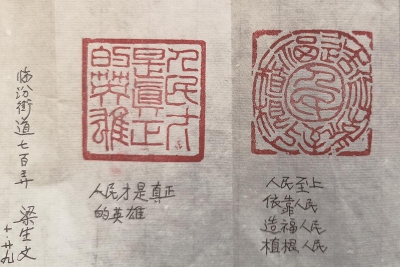 临汾街道七百弄 梁生文
十.廿九
人民才
是真正
的英雄
人民才是真正
的英雄
人民至上
依靠人民
造福人民
植根人民